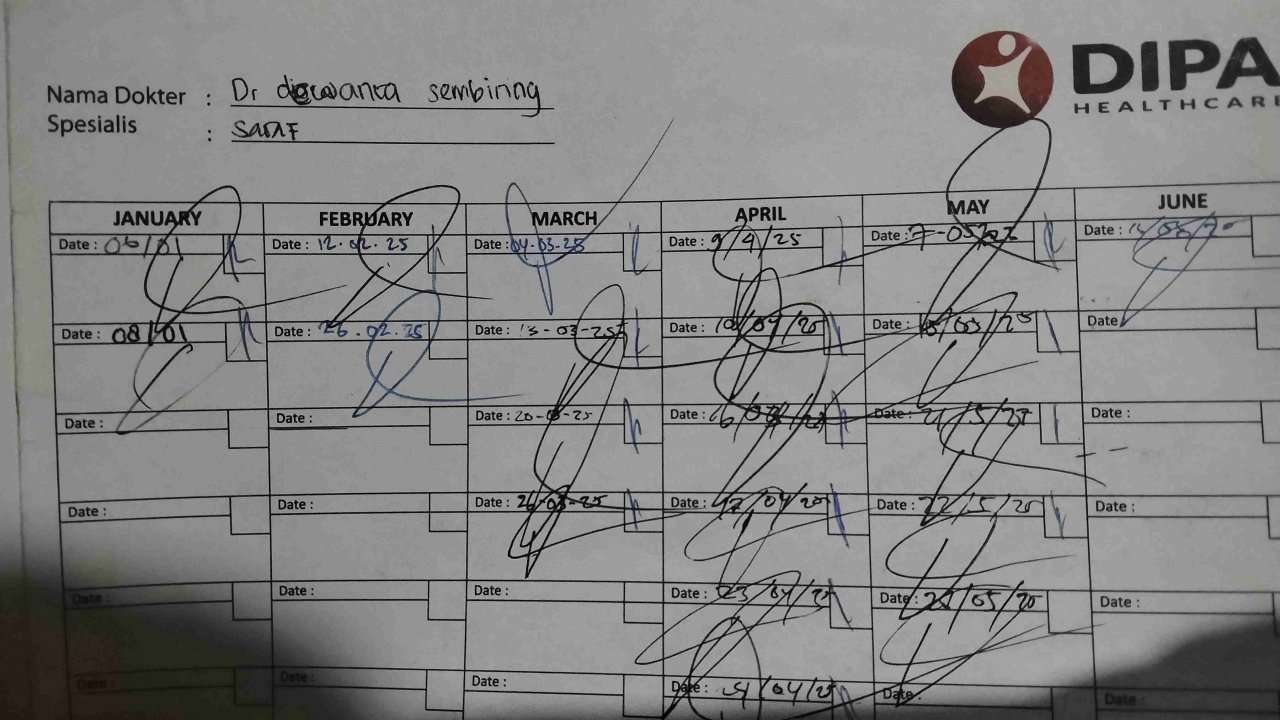 DIPA
HEALTHCARE
Nama Dokter : Dr sembiring
Spesialis : saraf
JANUARY FEBRUARY MARCH APRIL MAY JUNE
Date : 06/01 Date : 12.02.25 Date : 04.03.25 Date : 9/4/25 Date : 7-05 Date :
Date : 08/01 Date : 26.02.25 Date : 13-03-25 Date : 10/04/25 Date : Date :
Date : Date : Date : 20-03-25 Date : 16/04/25 Date : 21/5/25 Date :
Date : Date : Date : 26-03-25 Date : 17/04/25 Date : 22/5/25 Date :
Date : Date : Date : Date : 23/04/25 Date : /05/25 Date :
Date : Date : Date : Date : 24/04/25 Date :